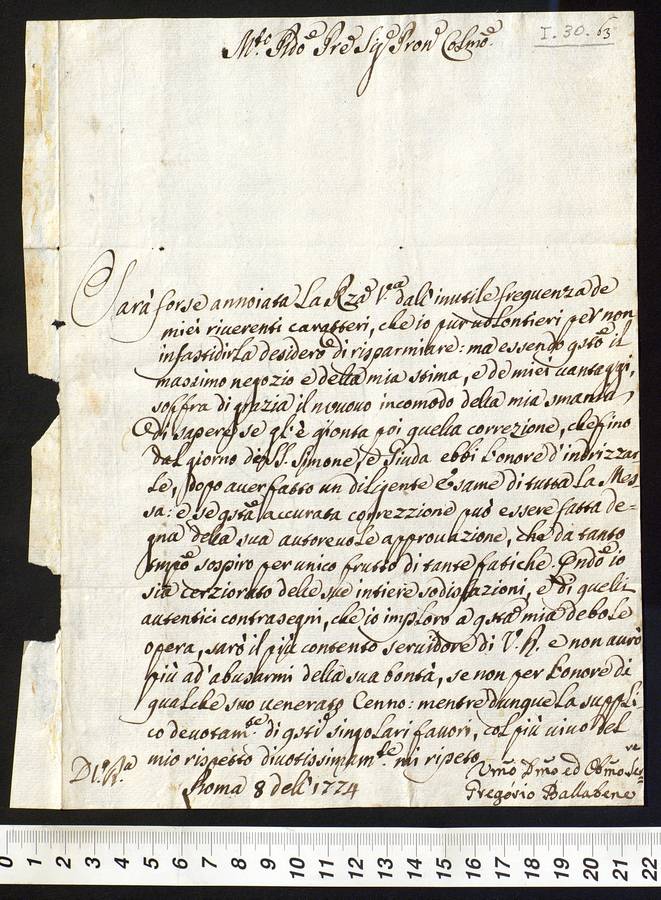 I. 30. 63
M.to Rdo Pre Sig.r Pron Colmo.
Sarà forse annoiata La Rza V.a dall'inutile frequenza de
miei riverenti caratteri, che io pur volontieri per non
infastidirla desidero di risparmiare: ma essendo gsto il
massimo negozio e della mia stima, e de miei vantaggi,
soffra di grazia il nuovo incomodo della mia smania
di sapere, se gl'è gionta poi quella correzione, che fino
dal giorno de SS. Simone, e Giuda ebbi l'onore d'indrizzar
Le, dopo aver fatto un diligente Esame di tutta La Mes-
sa: e se gsta accurata correzzione può essere fatta de-
gna della sua autorevole approvazione, che da tanto
tmpo sospiro per unico frutto di tante fatiche. Qndo io
sia cerziorato delle sue intiere sodisfazioni, e di quelli
autentici contrasegni, che io imploro a gsta mia debole
opera, sarò il più contento servidore di V. R. e non avrò
più ad'abusarmi della sua bontà, se non per l'onore di
qualche suo venerato Cenno: mentre dunque La suppli
co devotam.te di gsti singolari favori, col più vivo del
mio rispetto divotissimam.te mi ripeto
D V. R.a
Roma 8 dell' 1774
Vmo Dmo ed Obmo Se.re
Gregorio Ballabene
0 1 2 3 4 5 6 7 8 9 10 11 12 13 14 15 16 17 18 19 20 21 22